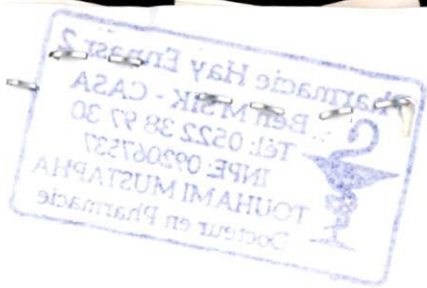 Pharmacie Hay Ennasr 2
Ben M'SIK - CASA
Tél: 0522 38 97 30
INPE: 092067537
TOUHAMI MUSTAPHA
Docteur en Pharmacie